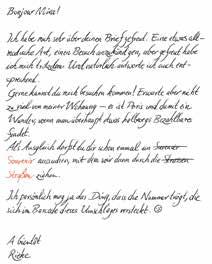 Bonjour Nina!
Ich habe mich sehr über deinen Brief gefreut. Eine etwas alt-
modische Art, einen Besuch anzukündigen, aber gefreut habe
ich mich trotzdem. Und natürlich antworte ich auch ent-
sprechend.
Gerne kannst du mich besuchen kommen! Erwarte aber nicht
zu viel von meiner Wohnung – es ist Paris und damit ein
Wunder, wenn man überhaupt etwas halbwegs Bezahlbares
findet.
Als Ausgleich darfst du dir schon einmal ein
Souvenir aussuchen, mit dem wir dann durch die Strassen
Straßen ziehen.
Ich persönlich mag ja das Ding, dass die Nummer trägt, die
sich im Barcode dieses Umschlages versteckt. ☺
A bientôt
Rieke